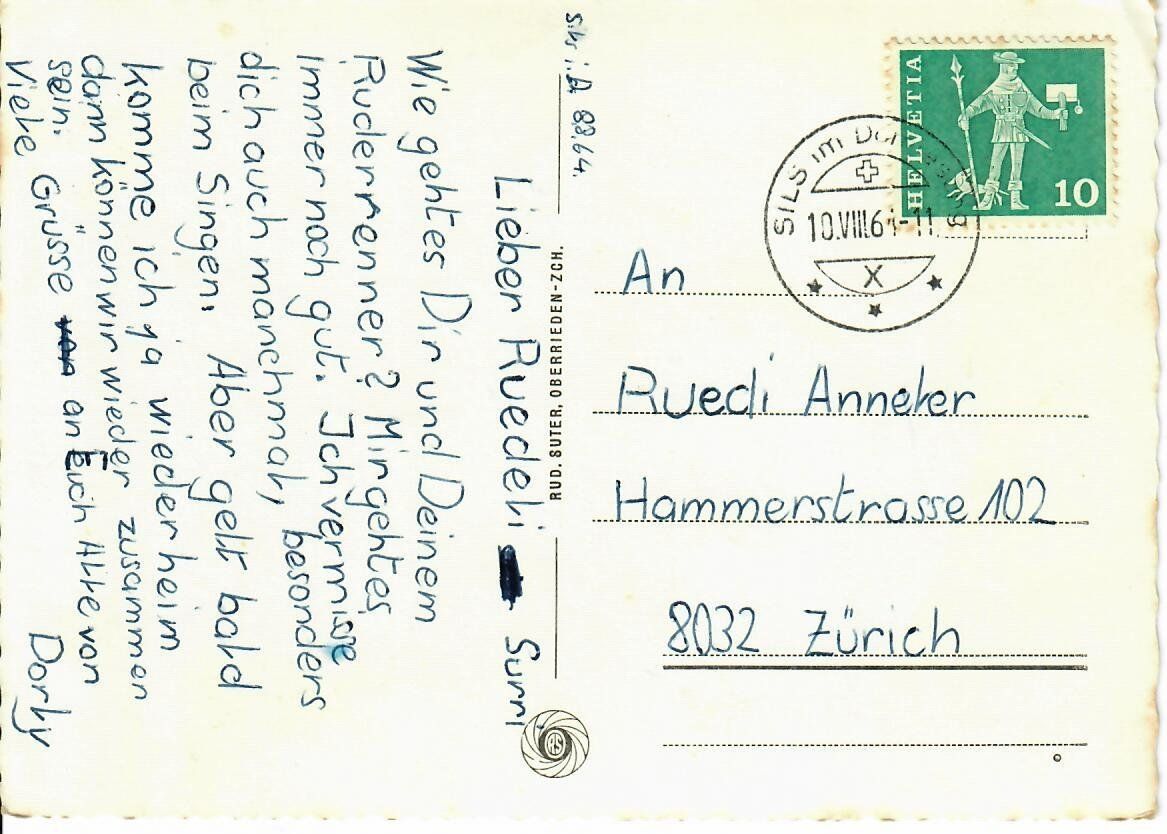 Sils i.D 8864.
Lieber Ruedeli Surri
Wie geht es Dir und Deinem
Ruderrenner? Mir geht es
Immer noch gut. Ich vermisse
dich auch manchmal, besonders
beim Singen. Aber gelt bald
komme ich ja wieder heim
dann können wir wieder zusammen
sein.
Viele Grüsse an Euch Alle von
Dorly
RUD. SUTER, OBERRIEDEN-ZCH.
RS
HELVETIA
10
SILS im Dom
10.VIII.64-11
X
An
Ruedi Anneler
Hammerstrasse 102
8032 Zürich